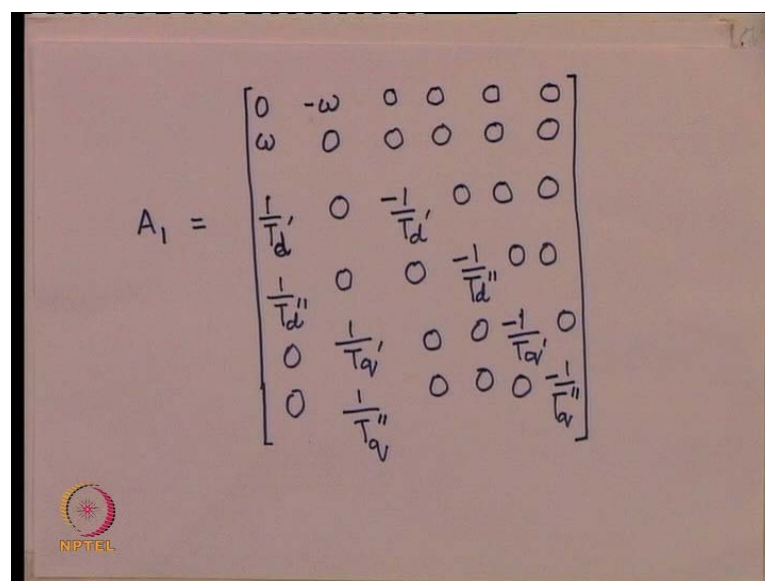 0 -ω 0 0 0 0
ω 0 0 0 0 0
A₁ =
1/Td' 0 -1/Td' 0 0 0
1/Td'' 0 0 -1/Td'' 0 0
0 1/Tq' 0 0 -1/Tq' 0
0 1/Tq'' 0 0 0 -1/Tq''
NPTEL